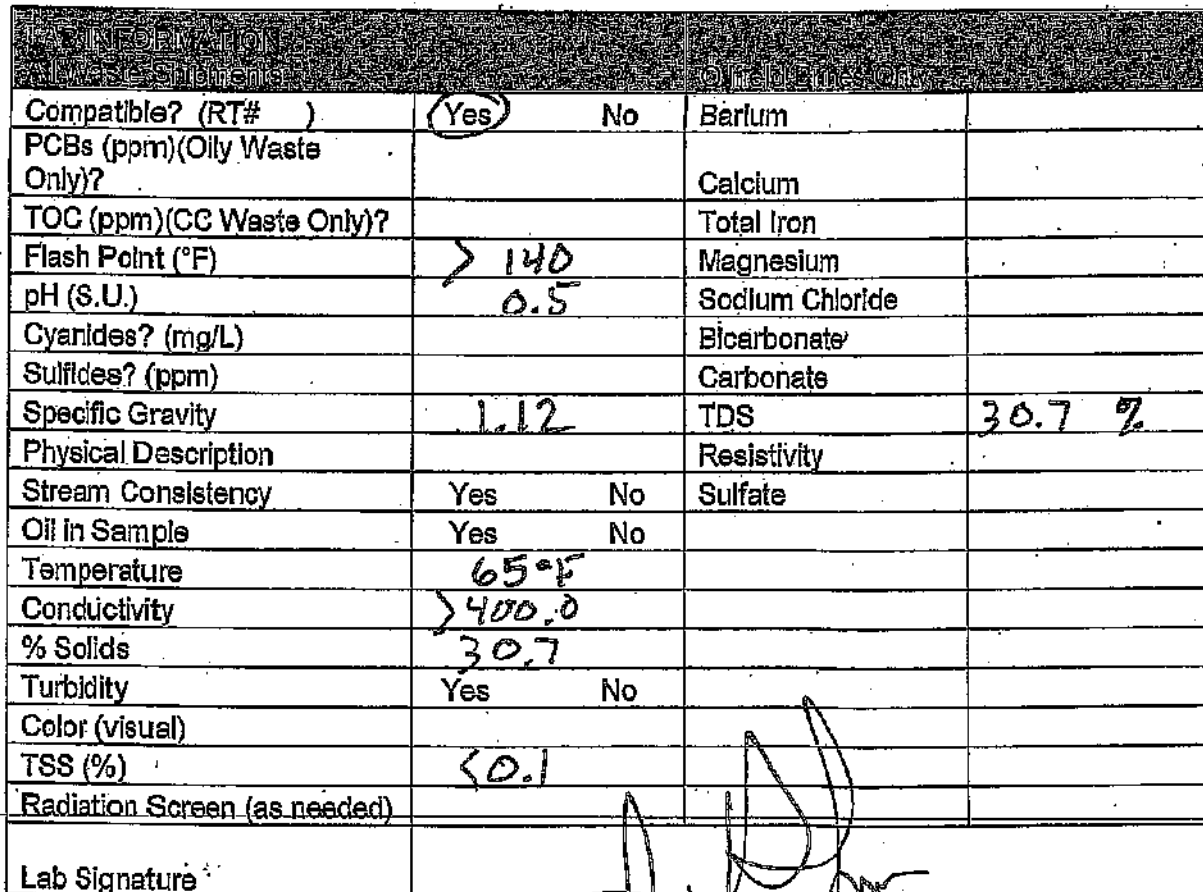 LAB INFORMATION
All Waste Shipments Oilfield Brines Only
Compatible? (RT# ) Yes No Barium
PCBs (ppm)(Oily Waste
Only)? Calcium
TOC (ppm)(CC Waste Only)? Total Iron
Flash Point (°F) > 140 Magnesium
pH (S.U.) 0.5 Sodium Chloride
Cyanides? (mg/L) Bicarbonate
Sulfides? (ppm) Carbonate
Specific Gravity 1.12 TDS 30.7 %
Physical Description Resistivity
Stream Consistency Yes No Sulfate
Oil in Sample Yes No
Temperature 65°F
Conductivity >400.0
% Solids 30.7
Turbidity Yes No
Color (visual)
TSS (%) <0.1
Radiation Screen (as needed)
Lab Signature